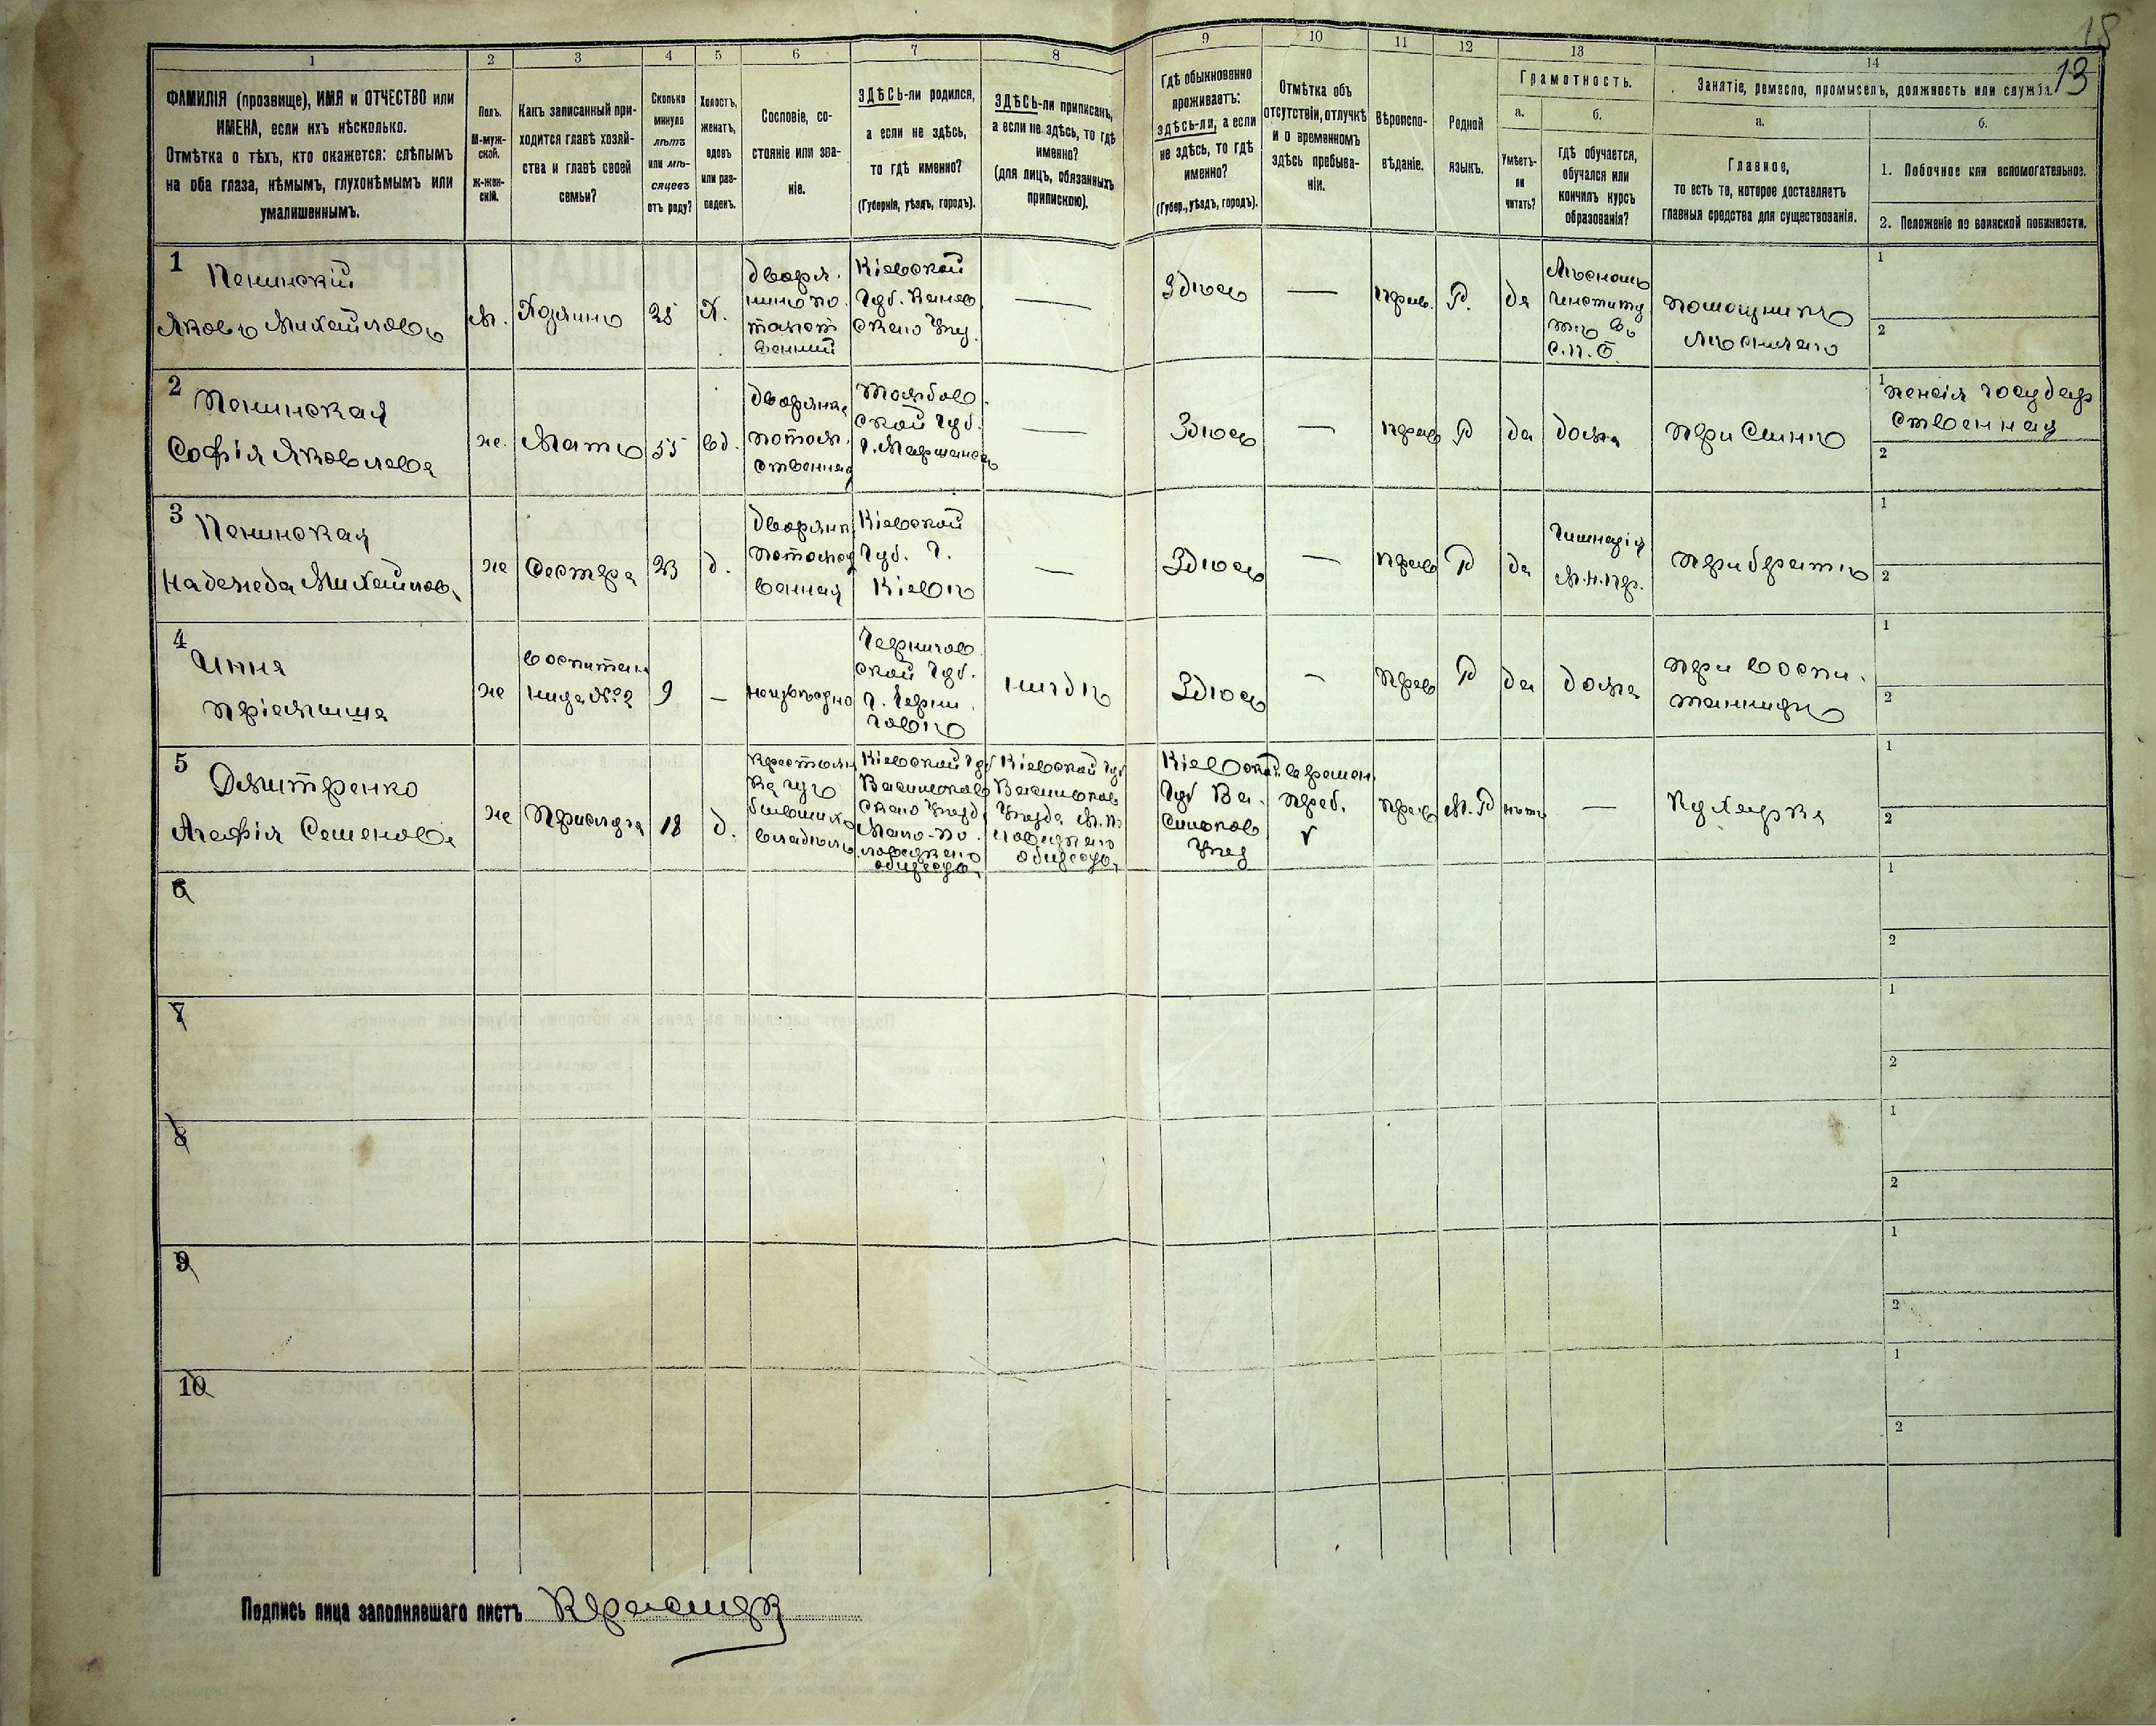 18
13
1 2 3 4 5 6 7 8 9 10 11 12 13 14
ФАМИЛІЯ (прозвище), ИМЯ и ОТЧЕСТВО или
ИМЕНА, если ихъ нѣсколько.
Отмѣтка о тѣхъ, кто окажется: слѣпымъ
на оба глаза, нѣмымъ, глухонѣмымъ или
умалишеннымъ.
Полъ.
М-муж-
ской.
Ж-жен-
скій.
Какъ записанный при-
ходится главѣ хозяй-
ства и главѣ своей
семьи?
Сколько
минуло
лѣтъ
или мѣ-
сяцевъ
отъ роду?
Холостъ,
женатъ,
вдовъ
или раз-
веденъ.
Сословіе, со-
стояніе или зва-
ніе.
ЗДѢСЬ-ли родился,
а если не здѣсь,
то гдѣ именно?
(Губернія, уѣздъ, городъ).
ЗДѢСЬ-ли приписанъ,
а если не здѣсь, то гдѣ
именно?
(для лицъ, обязанныхъ
припискою).
Гдѣ обыкновенно
проживаетъ:
здѣсь-ли, а если
не здѣсь, то гдѣ
именно?
(Губер., уѣздъ, городъ).
Отмѣтка объ
отсутствіи, отлучкѣ
и о временномъ
здѣсь пребыва-
ніи.
Вѣроиспо-
вѣданіе.
Родной
языкъ.
Грамотность.
а.
Умѣетъ-
ли
читать?
б.
гдѣ обучается,
обучался или
кончилъ курсъ
образованія?
Занятіе, ремесло, промыселъ, должность или служба.
а.
Главное,
то есть то, которое доставляетъ
главныя средства для существованія.
б.
1. Побочное или вспомогательное.
2. Положеніе по воинской повинности.
1
Пенинскій
Яковъ Михайловъ
м.
Хозяинъ
28
Х.
дворя.
нинъ по.
томст
венный
Кіевской
Губ. Канев
скаго Уѣз.
—
Здѣсь
—
прав.
Р.
да
Лѣсномъ
Институ
тѣ въ
С.П.Б.
помощникъ
лѣсничаго
1
2
2
Пенинская
Софія Яковлева
ж.
Мать
55
вд.
дворянка
потом.
ственная
Тамбов
ской Губ.
г. Маршанскъ
—
Здѣсь
—
прав
Р
да
дома
при сынѣ
1 пенсія государ
ственная
2
3
Пенинская
Надежда Михайлов.
ж
Сестра
23
д.
дворянк
потомст
венная
Кіевской
Губ. Г.
Кіевѣ
—
Здѣсь
—
прав
Р
да
Гимназія
М.Н.Пр.
при братѣ
1
2
4
Инна
пріемыша
ж
воспитан
ница №2
9
—
неизвѣстно
Чернигов
ской Губ.
г. Черни.
говѣ
нигдѣ
Здѣсь
—
прав
Р
да
дома
при воспи.
танницѣ
1
2
5
Дмитренко
Агафія Семенова
ж
Прислуга
18
д.
Крестьян
ка изъ
бывшихъ
владѣль
Кіевской Губ
Васильков
скаго Уѣзд
Мало-по
ловецкаго
общества
Кіевской Губ
Васильков
Уѣзда М.П.
ловецкаго
общества
Кіевской
Губ Ва.
сильков
Уѣзд
времен
преб.
V
прав
М.Р
нѣтъ
—
Кухарка
1
2
6
1
2
7
1
2
8
1
2
9
1
2
10
1
2
Подпись лица заполнявшаго листъ